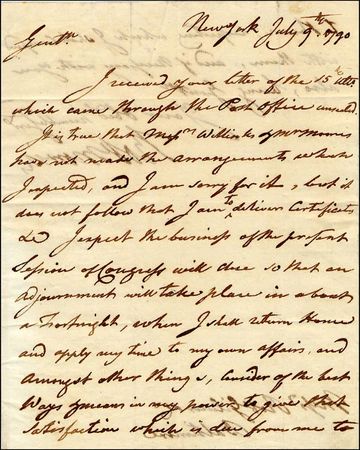 New York July 9th 1790
Gentn
I received your letter of the 15th Ulto
which came through the Post Office unsealed.
It is true that Messrs Willinks of
have not made the arrangements which
I expected, and I am sorry for it, but it
does not follow that I am to deliver Certificates
&c I expect the business of the present
Session of Congress will close so that an
adjournment will take place in about
a Fortnight, when I shall return Home
and apply my time to my own affairs, and
amongst other things, consider of the best
Ways & means in my power to give that
satisfaction which is due from me to